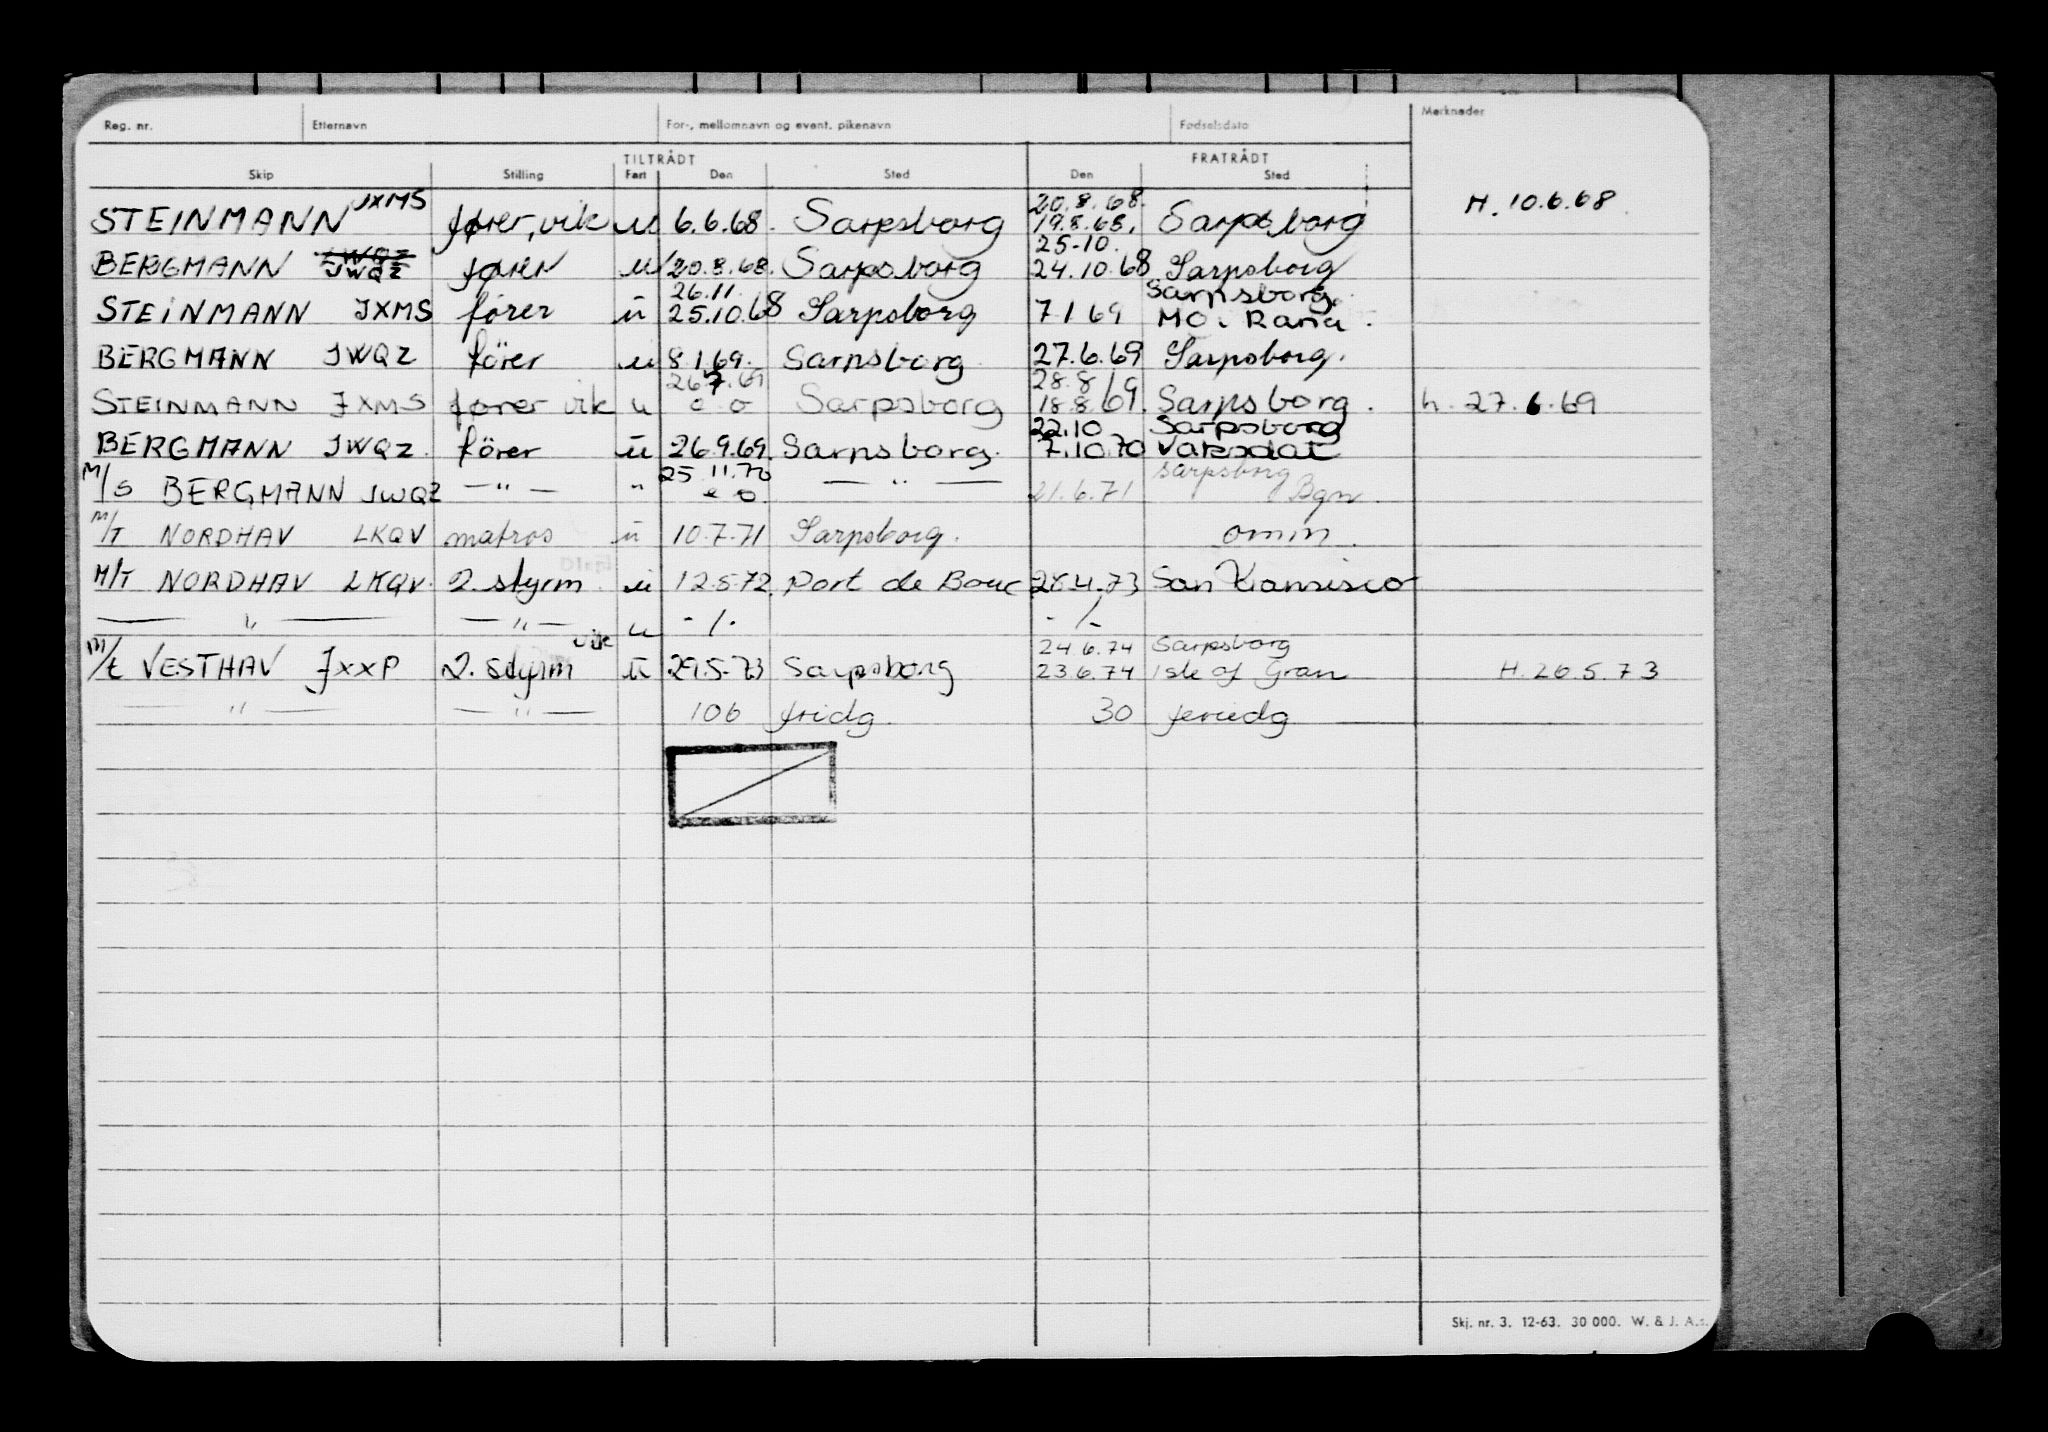 Reg. nr. Etternavn For-, mellomnavn og event. pikenavn Fødselsdato Merknader
TILTRÅDT FRATRÅDT
Skip Stilling Fart Den Sted Den Sted
STEINMANN JXMS fører, vik u 6.6.68. Sarpsborg 20.8.68. 19.8.68. Sarpsborg H. 10.6.68
BERGMANN JWQZ fører u 20.8.68. Sarpsborg 25.10. 24.10.68 Sarpsborg
STEINMANN JXMS fører u 26.11 25.10.68 Sarpsborg 7 1 69 Sarpsborg. MO i Rana.
BERGMANN JWQZ förer u 8.1.69. Sarpsborg 27.6.69 Sarpsborg.
STEINMANN JXMS fører vik u 26.7.69 o o Sarpsborg 28.8 18.8.69. Sarpsborg. h. 27.6.69
BERGMANN JWQZ. förer u 26.9.69. Sarpsborg. 22.10 7.10.70 Sarpsborg Vaksdal
M/S BERGMANN JWQZ — " — " 25.11.70 o o. — " — 21.6.71 Sarpsborg Bgn.
M/T NORDHAV LKQV matros u 10.7.71 Sarpsborg. omm.
M/T NORDHAV LKQV. 2. styrm. u 12.5.72. Port de Bouc 28.4.73 San Fransisco
— " — — " — u - / - - / -
M/t VESTHAV JXXP 2. styrm vik u 29.5.73 Sarpsborg 24.6.74 Sarpsborg 23.6.74 Isle of Gran H. 26.5.73
— " — — " — 106 fridg. 30 feriedg
Skj. nr. 3. 12-63. 30 000. W. & J. A.s.